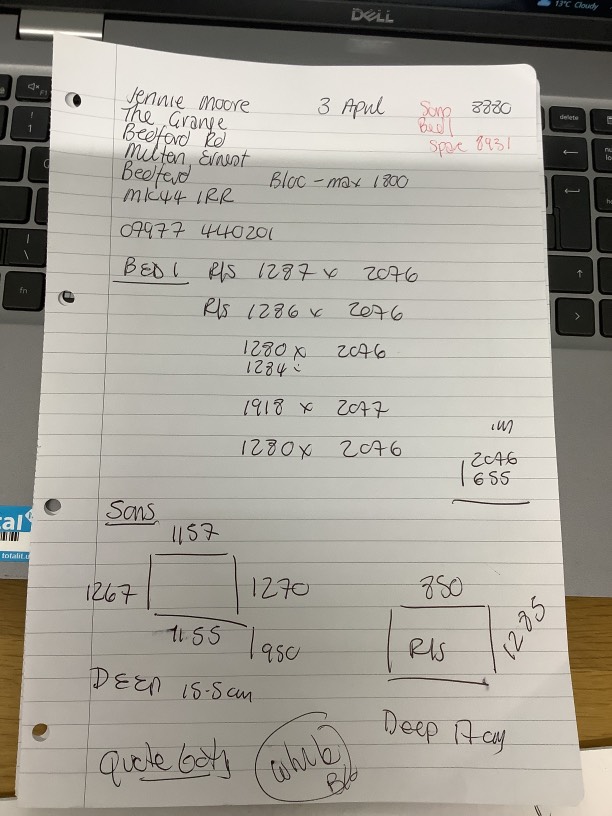 13°C Cloudy
DELL
delete
fn
Jennie Moore 3 April Sons 8880
The Grange Bed1
Bedford Rd Spare 8931
Milton Ernest
Bedford Bloc - max 1800
MK44 1RR
07977 440201
BED 1 R/s 1287 x 2076
R/s 1286 x 2076
1280 x 2076
1284
1918 x 2077
1280 x 2076
2076
655
Sons
1157
1267 1270
1155
1950
850
R/s
1285
DEEP 15.5cm
Deep 17cm
Quote both
white
Blo
tal
totalit.u